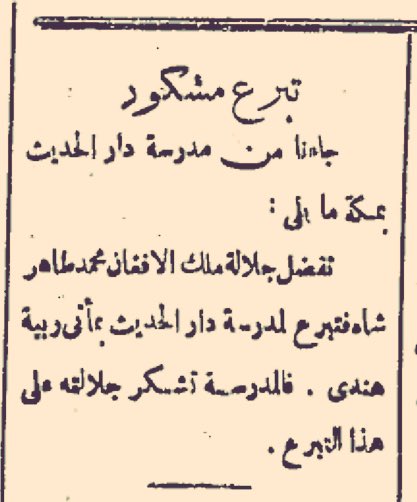 تبرع مشكور
جاءنا من مدرسة دار الحديث
بمكة ما يلى :
تفضل جلالة ملك الافغان محمد طاهر
شاه فتبرع لمدرسة دار الحديث بمأتى ربية
هندى . فالمدرسة تشكر جلالته على
هذا التبرع .